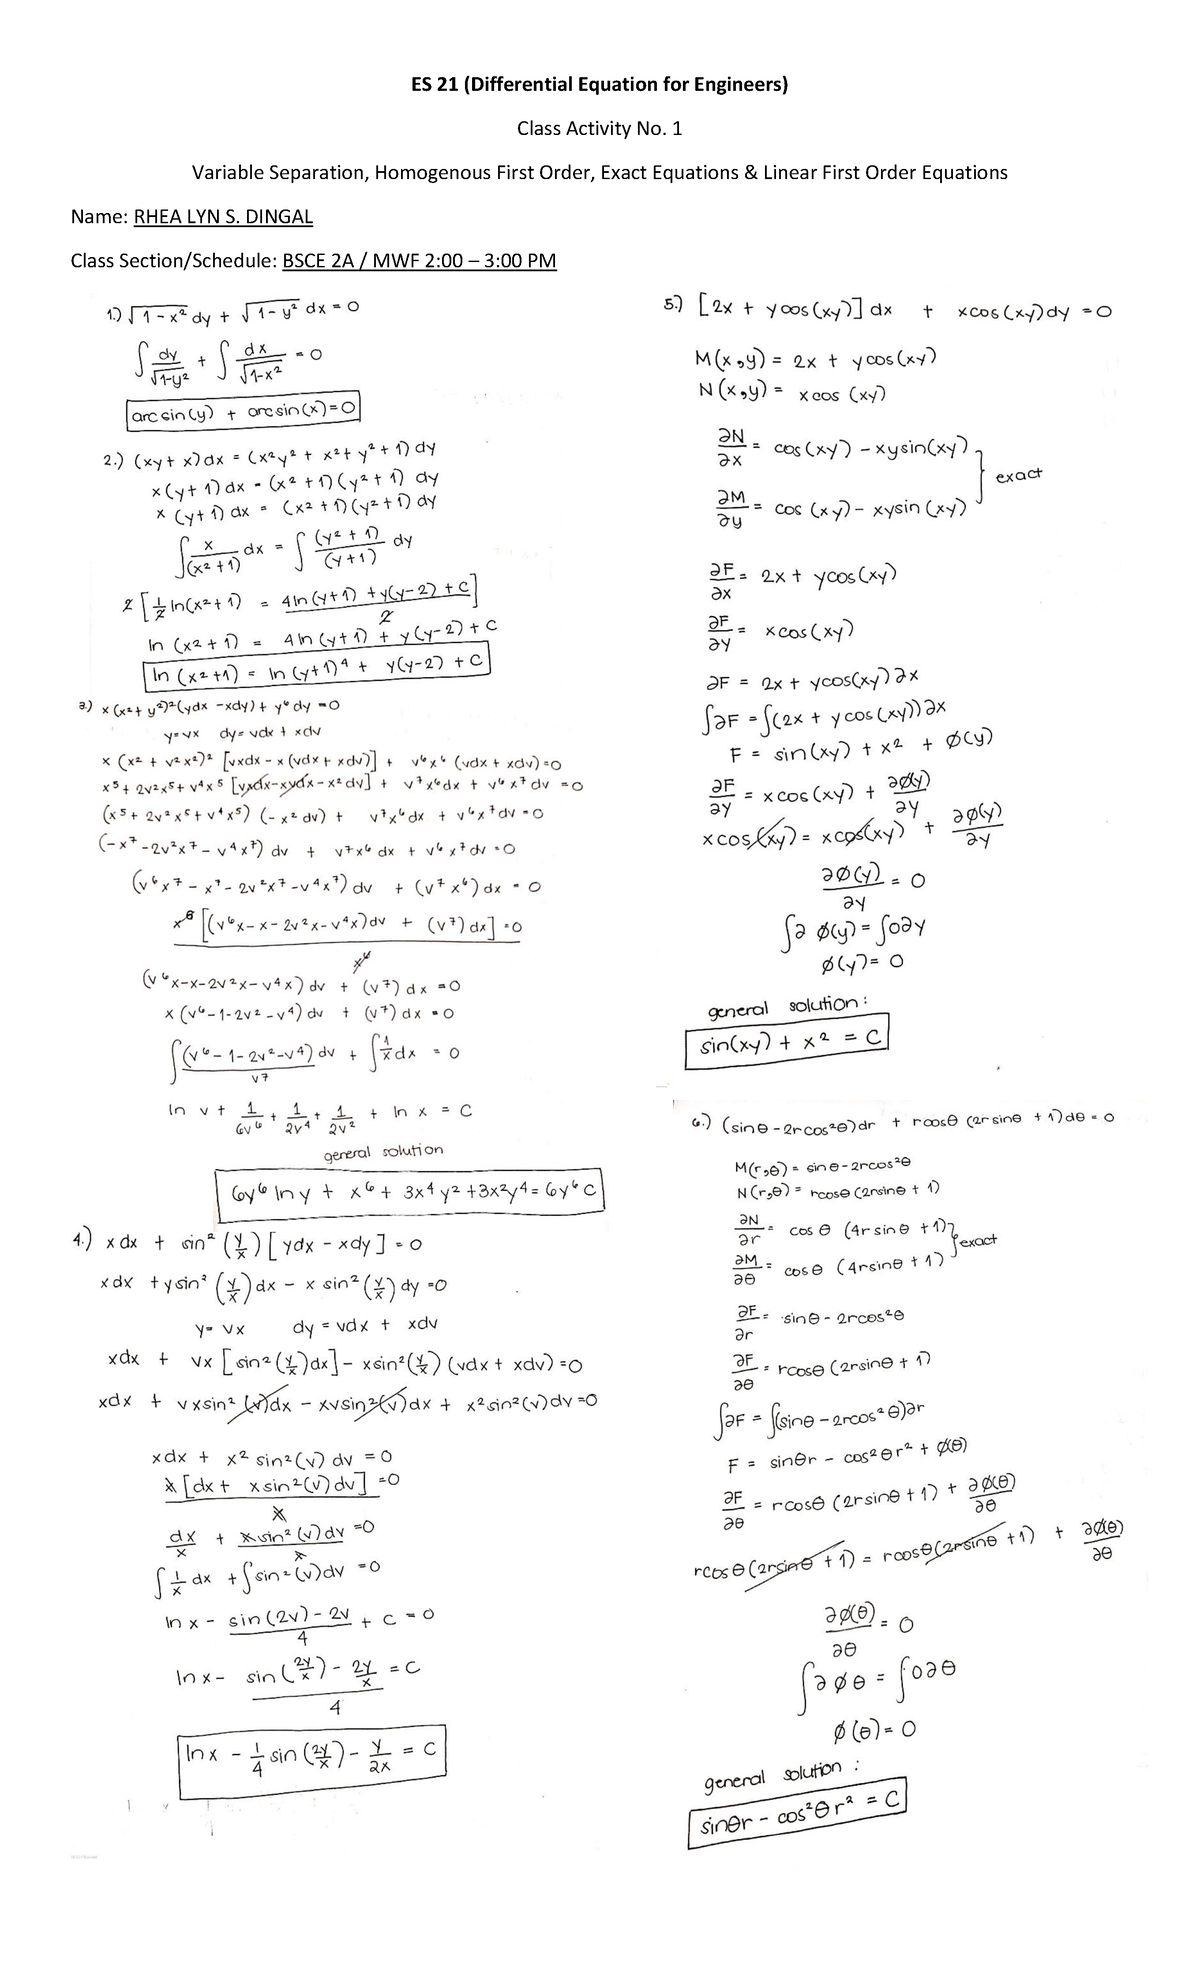 ES 21 (Differential Equation for Engineers)
Class Activity No. 1
Variable Separation, Homogenous First Order, Exact Equations & Linear First Order Equations
Name: RHEA LYN S. DINGAL
Class Section/Schedule: BSCE 2A / MWF 2:00 – 3:00 PM
1.) √(1-x²) dy + √(1-y²) dx = 0
∫ dy/√(1-y²) + ∫ dx/√(1-x²) = 0
arcsin(y) + arcsin(x) = 0
2.) (xy + x) dx = (x²y² + x² + y² + 1) dy
x(y+1) dx = (x² + 1)(y² + 1) dy
x (y+1) dx = (x² + 1)(y² + 1) dy
∫ x/(x²+1) dx = ∫ (y²+1)/(y+1) dy
2 [ 1/2 ln(x²+1) = 4ln(y+1) + y(y-2) + C / 2 ]
ln (x²+1) = 4ln(y+1) + y(y-2) + C
ln (x²+1) = ln (y+1)⁴ + y(y-2) + C
3.) x (x² + y²)² (ydx - xdy) + y⁶ dy = 0
y=vx dy= vdx + xdv
x (x² + v²x²)² [vxdx - x (vdx + xdv)] + v⁶x⁶ (vdx + xdv) = 0
x⁵ + 2v²x⁵ + v⁴x⁵ [vxdx - xvdx - x²dv] + v⁷x⁶dx + v⁶x⁷dv = 0
(x⁵ + 2v²x⁵ + v⁴x⁵) (-x²dv) + v⁷x⁶dx + v⁶x⁷dv = 0
(-x⁷ - 2v²x⁷ - v⁴x⁷) dv + v⁷x⁶ dx + v⁶x⁷ dv = 0
(v⁶x⁷ - x⁷ - 2v²x⁷ - v⁴x⁷) dv + (v⁷x⁶) dx = 0
x⁶ [(v⁶x - x - 2v²x - v⁴x) dv + (v⁷) dx] = 0
x⁶
(v⁶x - x - 2v²x - v⁴x) dv + (v⁷) dx = 0
x (v⁶ - 1 - 2v² - v⁴) dv + (v⁷) dx = 0
∫ (v⁶ - 1 - 2v² - v⁴) dv / v⁷ + ∫ 1/x dx = 0
ln v + 1/6v⁶ + 1/2v⁴ + 1/2v² + ln x = C
general solution
6y⁶ ln y + x⁶ + 3x⁴y² + 3x²y⁴ = 6y⁶C
4.) x dx + sin² (y/x) [ydx - xdy] = 0
xdx + ysin² (y/x) dx - x sin² (y/x) dy = 0
y= vx dy = vdx + xdv
xdx + vx [sin² (y/x) dx] - xsin² (y/x) (vdx + xdv) = 0
xdx + vxsin² (v)dx - xvsin² (v)dx + x²sin²(v)dv = 0
xdx + x² sin²(v) dv = 0
x [dx + xsin²(v)dv] = 0
x
dx/x + xsin²(v)dv/x = 0
∫ 1/x dx + ∫ sin²(v)dv = 0
ln x - sin(2v) - 2v / 4 + C = 0
ln x - sin(2y/x) - 2y/x / 4 = C
ln x - 1/4 sin (2y/x) - y/2x = C
5.) [2x + ycos(xy)] dx + xcos(xy)dy = 0
M(x,y) = 2x + ycos(xy)
N(x,y) = xcos (xy)
∂N/∂x = cos(xy) - xysin(xy)
∂M/∂y = cos (xy) - xysin (xy)
exact
∂F/∂x = 2x + ycos(xy)
∂F/∂y = xcos(xy)
∂F = 2x + ycos(xy) ∂x
∫∂F = ∫(2x + ycos(xy)) ∂x
F = sin(xy) + x² + ø(y)
∂F/∂y = xcos(xy) + ∂ø(y)/∂y
xcos(xy) = xcos(xy) + ∂ø(y)/∂y
∂ø(y)/∂y = 0
∫∂ ø(y) = ∫0∂y
ø(y) = 0
general solution:
sin(xy) + x² = C
6.) (sinθ - 2rcos²θ) dr + rcosθ (2rsinθ + 1) dθ = 0
M(r,θ) = sinθ - 2rcos²θ
N(r,θ) = rcosθ (2rsinθ + 1)
∂N/∂r = cosθ (4rsinθ + 1)
∂M/∂θ = cosθ (4rsinθ + 1)
exact
∂F/∂r = sinθ - 2rcos²θ
∂F/∂θ = rcosθ (2rsinθ + 1)
∫∂F = ∫(sinθ - 2rcos²θ)∂r
F = sinθr - cos²θr² + ø(θ)
∂F/∂θ = rcosθ (2rsinθ + 1) + ∂ø(θ)/∂θ
rcosθ (2rsinθ + 1) = rcosθ (2rsinθ + 1) + ∂ø(θ)/∂θ
∂ø(θ)/∂θ = 0
∫∂øθ = ∫0∂θ
ø(θ) = 0
general solution :
sinθr - cos²θr² = C